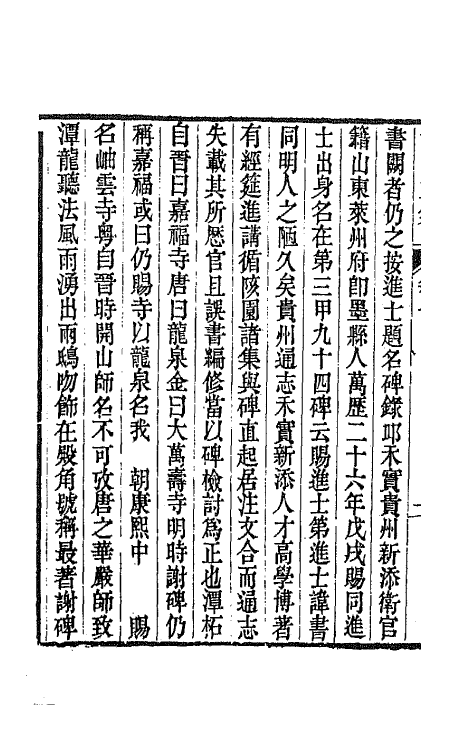 書闕者仍之按進士題名碑錄邱禾實貴州新添衛官
籍山東萊州府卽墨縣人萬歷二十六年戊戌賜同進
士出身名在第三甲九十四碑云賜進士第進士諱書
同明人之陋久矣貴州通志禾實新添人才高學博著
有經筵進講循陔園諸集與碑直起居注文合而通志
失載其所歷官且誤書編修當以碑檢討為正也潭柘
自晉曰嘉福寺唐曰龍泉金曰大萬壽寺明時謝碑仍
稱嘉福或曰仍賜寺以龍泉名我 朝康熙中 賜
名岫雲寺粵自晉時開山師名不可攷唐之華嚴師致
潭龍聽法風雨湧出兩鴟吻飾在殿角號稱最著謝碑